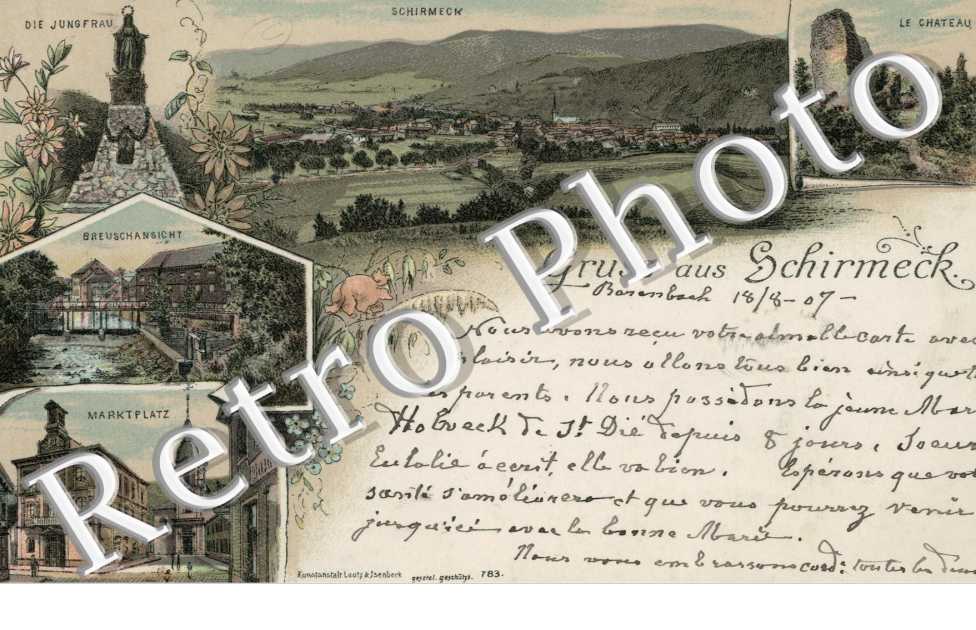 SCHIRMECK
DIE JUNGFRAU
LE CHATEAU
BREUSCHANSICHT
MARKTPLATZ
Gruss aus Schirmeck.
18/8-07-
Nous avons reçu votre carte avec
plaisir, nous allons tous bien ainsi que
parents. Nous possédons la jeune
de St Dié depuis 8 jours. Soeur
Eulalie a écrit, elle va bien. Espérons que
santé s'améliorera et que vous pourrez venir
jusqu'ici avec la bonne Marie.
Nous vous embrassons cord: toutes les
Kunstanstalt Lautz & Isenbeck gesetzl. geschützt. 783.
Retro Photo